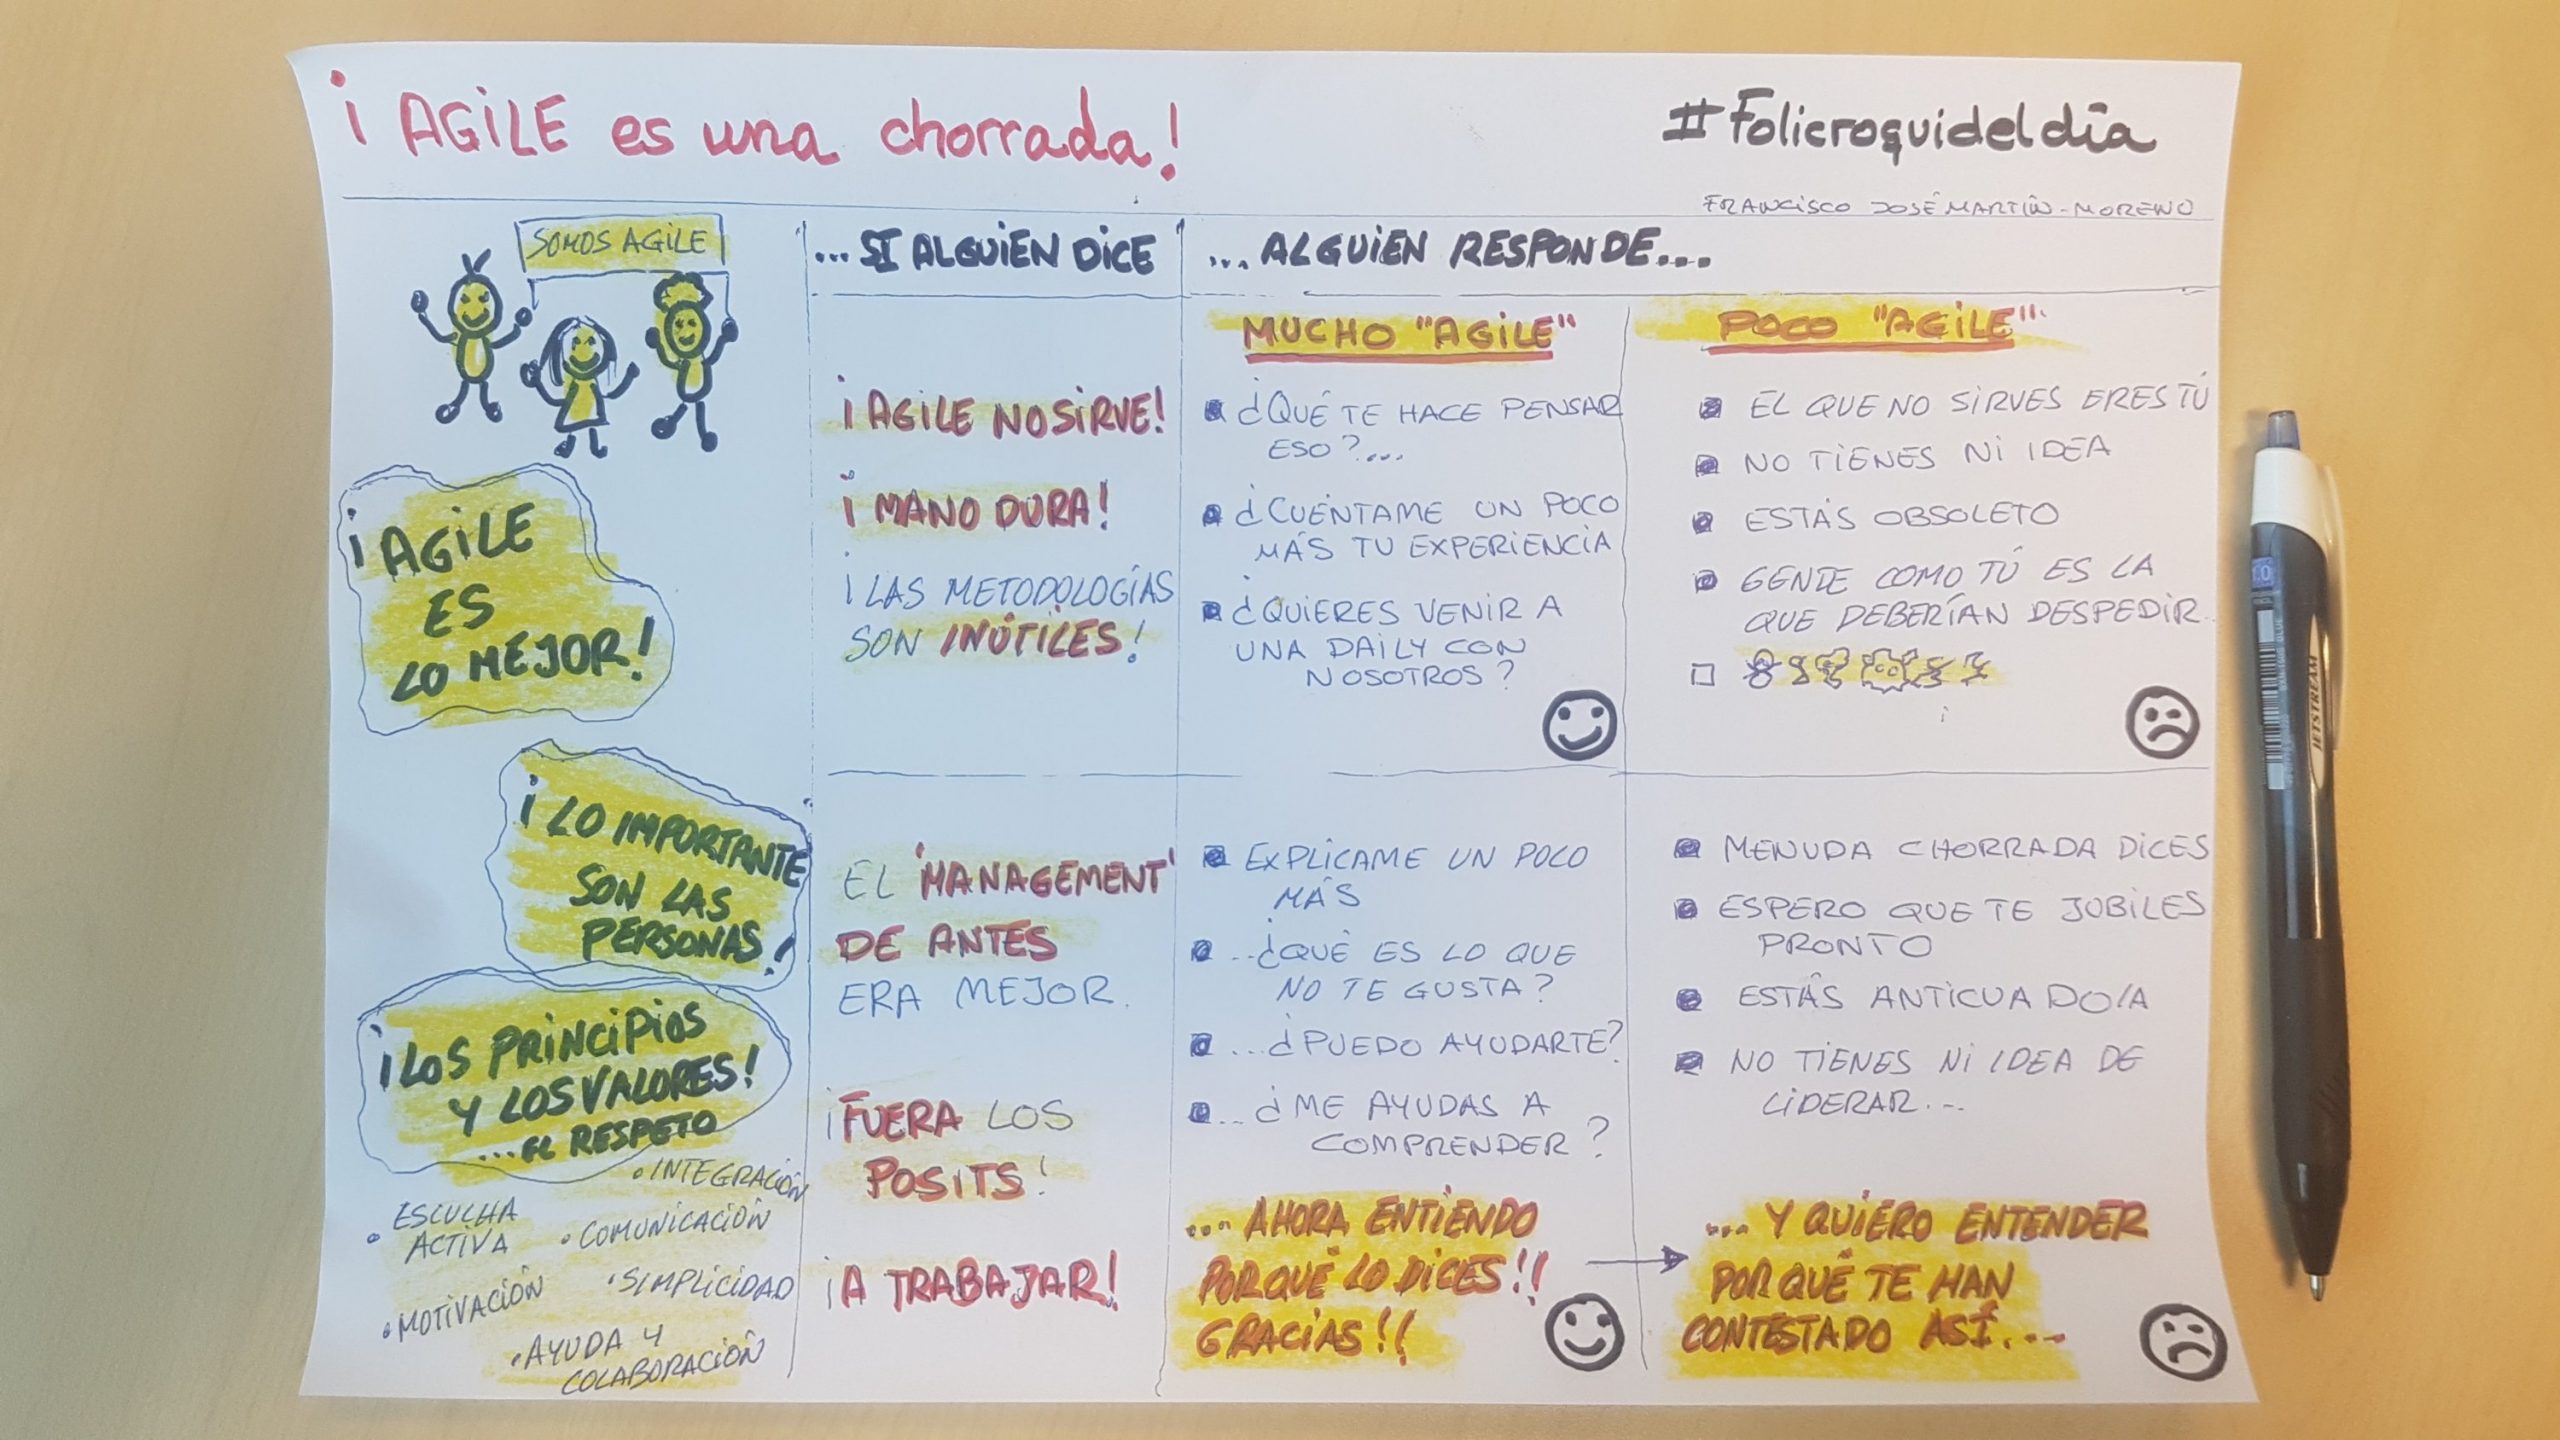 ¡AGILE es una chorrada!
#Folicroquideldía
FRANCISCO JOSÉ MARTÍN-MORENO
SOMOS AGILE
¡AGILE
ES
LO MEJOR!
¡LO IMPORTANTE
SON LAS
PERSONAS!
¡LOS PRINCIPIOS
Y LOS VALORES!
...EL RESPETO
• INTEGRACIÓN
• ESCUCHA
ACTIVA
• COMUNICACIÓN
• SIMPLICIDAD
• MOTIVACIÓN
• AYUDA Y
COLABORACIÓN
...SI ALGUIEN DICE
¡AGILE NO SIRVE!
¡MANO DURA!
¡LAS METODOLOGÍAS
SON INÚTILES!
EL 'MANAGEMENT'
DE ANTES
ERA MEJOR.
¡FUERA LOS
POSITS!
¡A TRABAJAR!
...ALGUIEN RESPONDE....
MUCHO "AGILE"
¿QUÉ TE HACE PENSAR
ESO?....
¿CUÉNTAME UN POCO
MÁS TU EXPERIENCIA
¿QUIERES VENIR A
UNA DAILY CON
NOSOTROS?
EXPLÍCAME UN POCO
MÁS
...¿QUÉ ES LO QUE
NO TE GUSTA?
...¿PUEDO AYUDARTE?
...¿ME AYUDAS A
COMPRENDER?
... AHORA ENTIENDO
PORQUÉ LO DICES!!
GRACIAS!!
POCO "AGILE"
EL QUE NO SIRVES ERES TÚ
NO TIENES NI IDEA
ESTÁS OBSOLETO
GENTE COMO TÚ ES LA
QUE DEBERÍAN DESPEDIR.
MENUDA CHORRADA DICES
ESPERO QUE TE JUBILES
PRONTO
ESTÁS ANTICUADO/A
NO TIENES NI IDEA DE
LIDERAR...
... Y QUIERO ENTENDER
POR QUÉ TE HAN
CONTESTADO ASÍ...
1.0
JETSTREAM